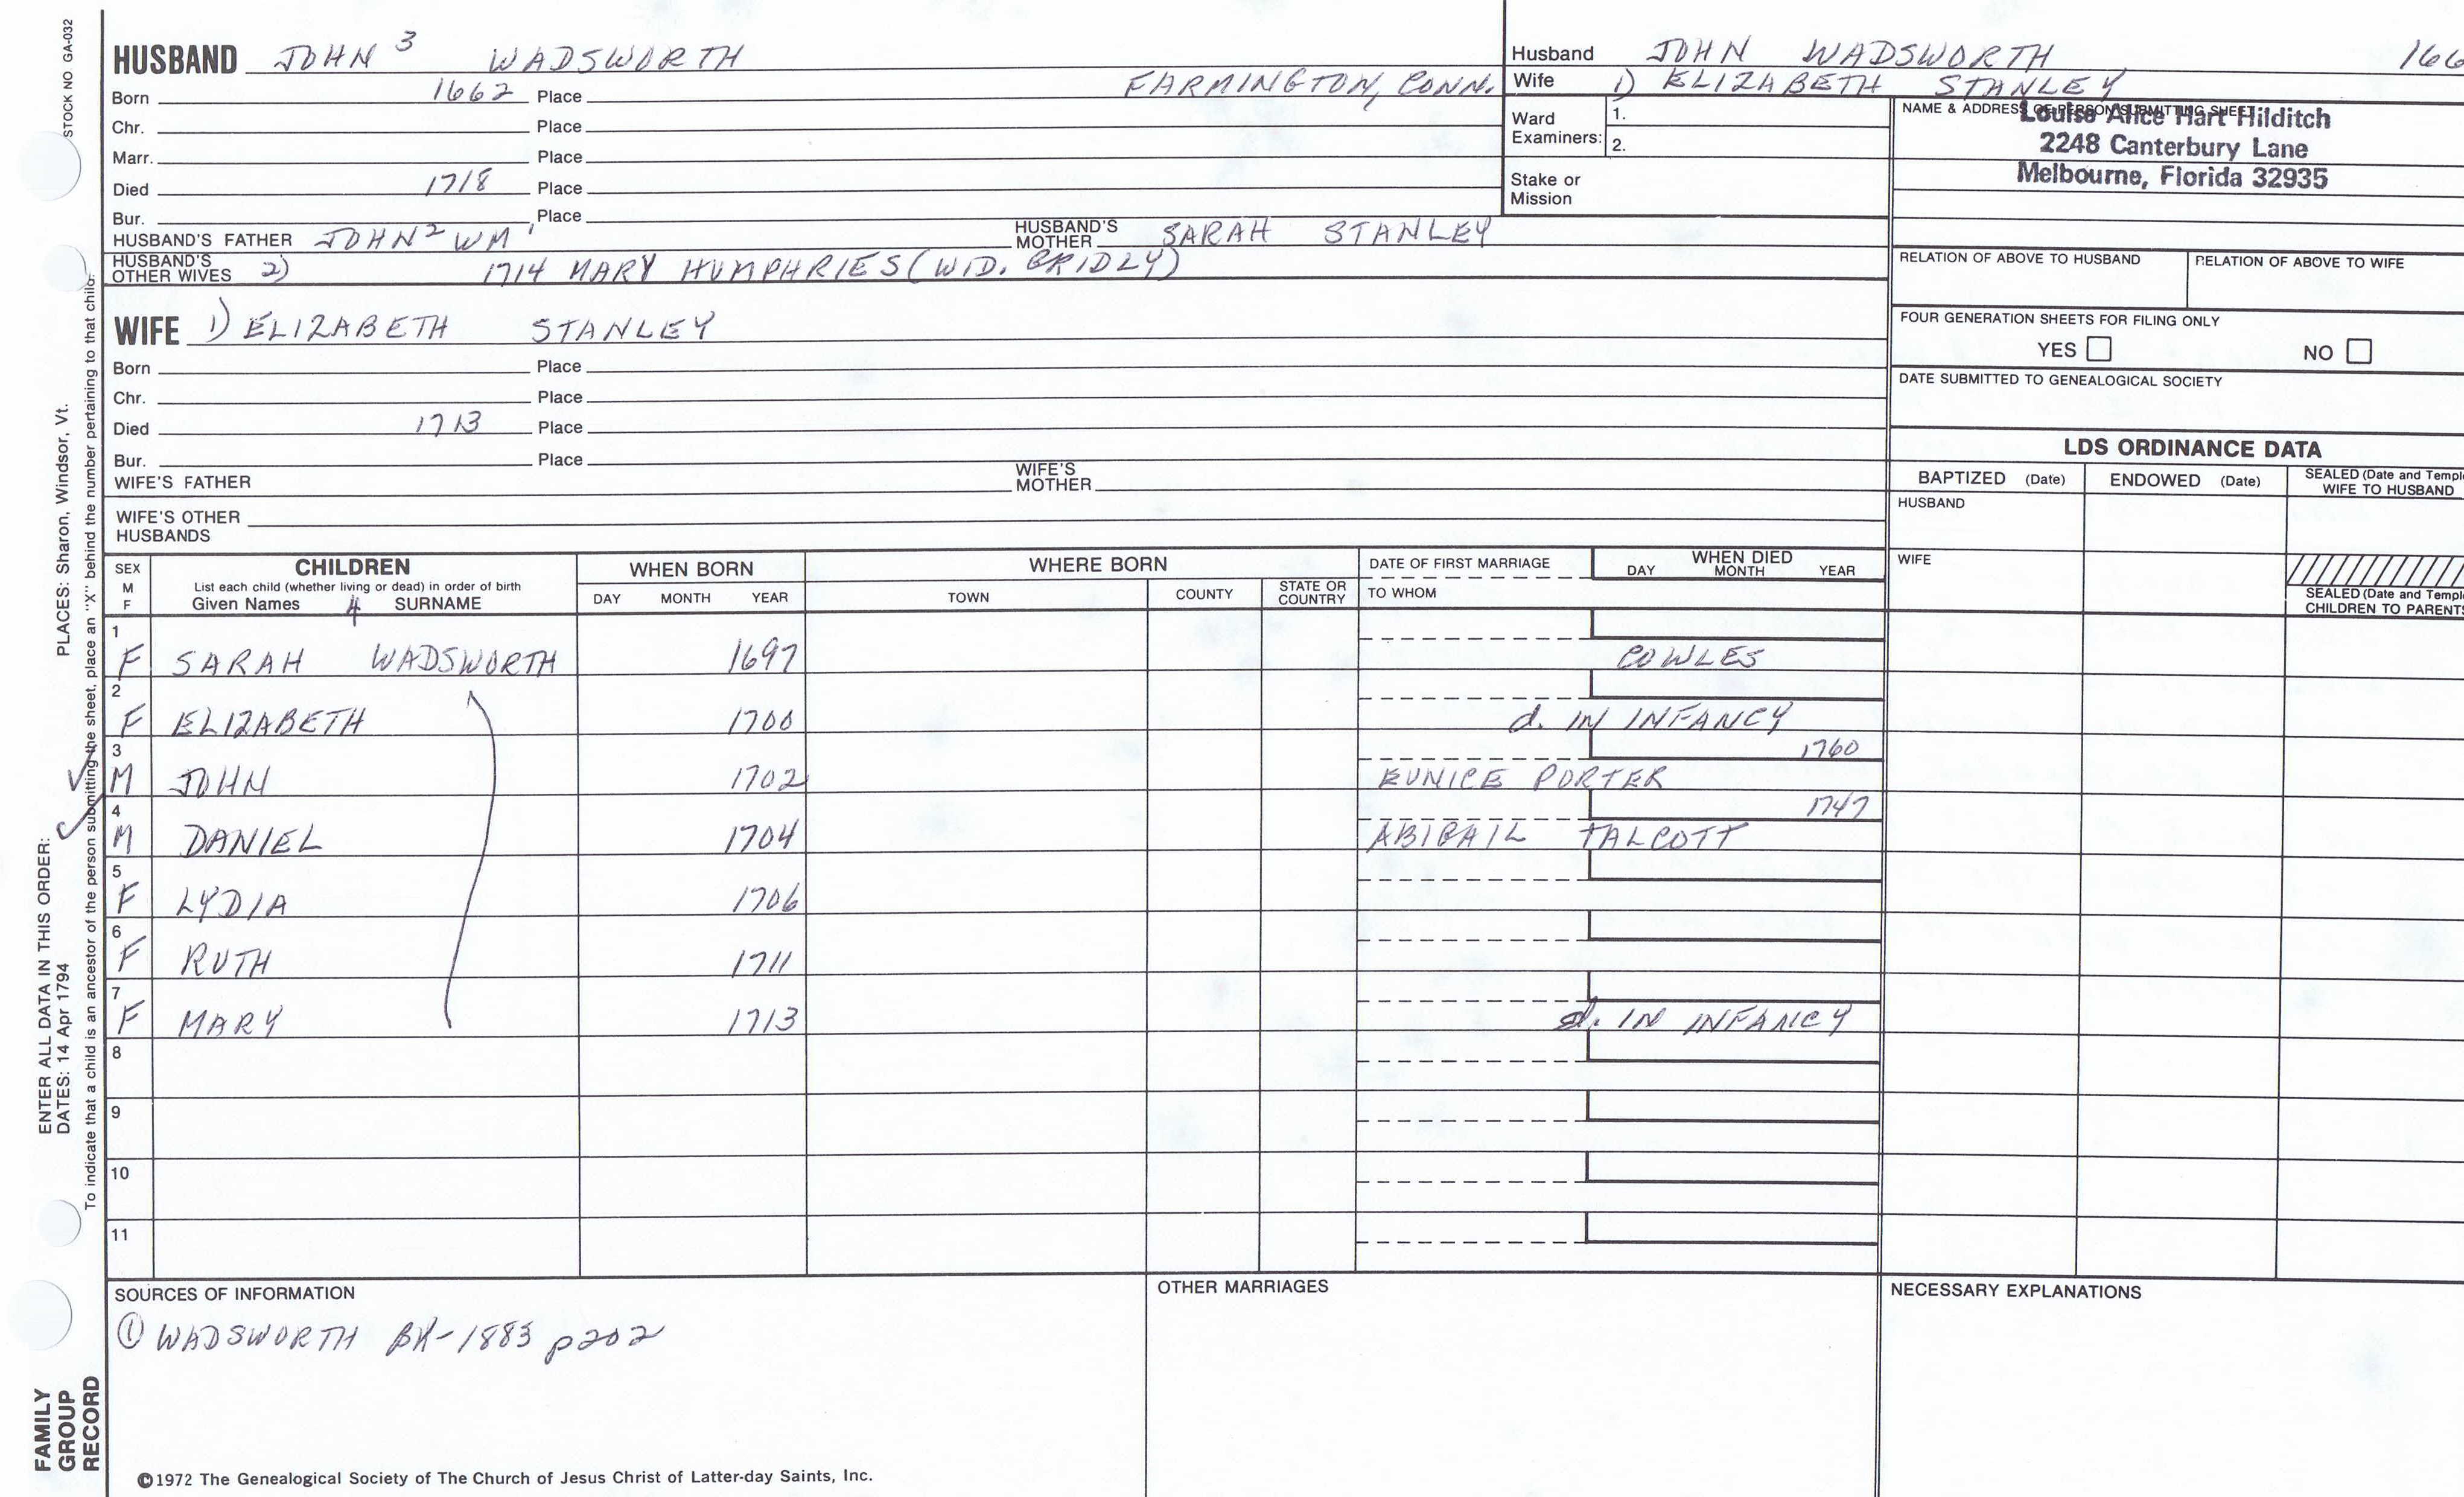 STOCK NO GA-032
HUSBAND JOHN 3 WADSWORTH
Born 1662 Place FARMINGTON, CONN.
Chr. Place
Marr. Place
Died 1718 Place
Bur. Place
HUSBAND'S FATHER JOHN 2 WM 1 HUSBAND'S MOTHER SARAH STANLEY
HUSBAND'S OTHER WIVES 2) 1714 MARY HUMPHRIES (WID. BRIDLY)
WIFE 1) ELIZABETH STANLEY
Born Place
Chr. Place
Died 1713 Place
Bur. Place
WIFE'S FATHER WIFE'S MOTHER
WIFE'S OTHER HUSBANDS
Husband JOHN WADSWORTH 166
Wife 1) ELIZABETH STANLEY
Ward Examiners: 1.
2.
Stake or Mission
NAME & ADDRESS OF PERSON SUBMITTING SHEET
Louise Alice Hart Hilditch
2248 Canterbury Lane
Melbourne, Florida 32935
RELATION OF ABOVE TO HUSBAND RELATION OF ABOVE TO WIFE
FOUR GENERATION SHEETS FOR FILING ONLY
YES NO
DATE SUBMITTED TO GENEALOGICAL SOCIETY
LDS ORDINANCE DATA
BAPTIZED (Date) ENDOWED (Date) SEALED (Date and Templ
WIFE TO HUSBAND
HUSBAND
WIFE
SEALED (Date and Templ
CHILDREN TO PARENTS
SEX M F
CHILDREN
List each child (whether living or dead) in order of birth
Given Names 4 SURNAME
WHEN BORN
DAY MONTH YEAR
WHERE BORN
TOWN COUNTY STATE OR COUNTRY
DATE OF FIRST MARRIAGE
TO WHOM
WHEN DIED
DAY MONTH YEAR
1 F SARAH WADSWORTH 1697 COWLES
2 F ELIZABETH 1700 d. IN INFANCY
3 M JOHN 1702 EUNICE PORTER 1760
4 M DANIEL 1704 ABIGAIL TALCOTT 1747
5 F LYDIA 1706
6 F RUTH 1711
7 F MARY 1713 d. IN INFANCY
8
9
10
11
SOURCES OF INFORMATION
① WADSWORTH BK-1883 p202
OTHER MARRIAGES
NECESSARY EXPLANATIONS
©1972 The Genealogical Society of The Church of Jesus Christ of Latter-day Saints, Inc.
PLACES: Sharon, Windsor, Vt.
ENTER ALL DATA IN THIS ORDER:
DATES: 14 Apr 1794
To indicate that a child is an ancestor of the person submitting the sheet, place an "X" behind the number pertaining to that child.
FAMILY
GROUP
RECORD